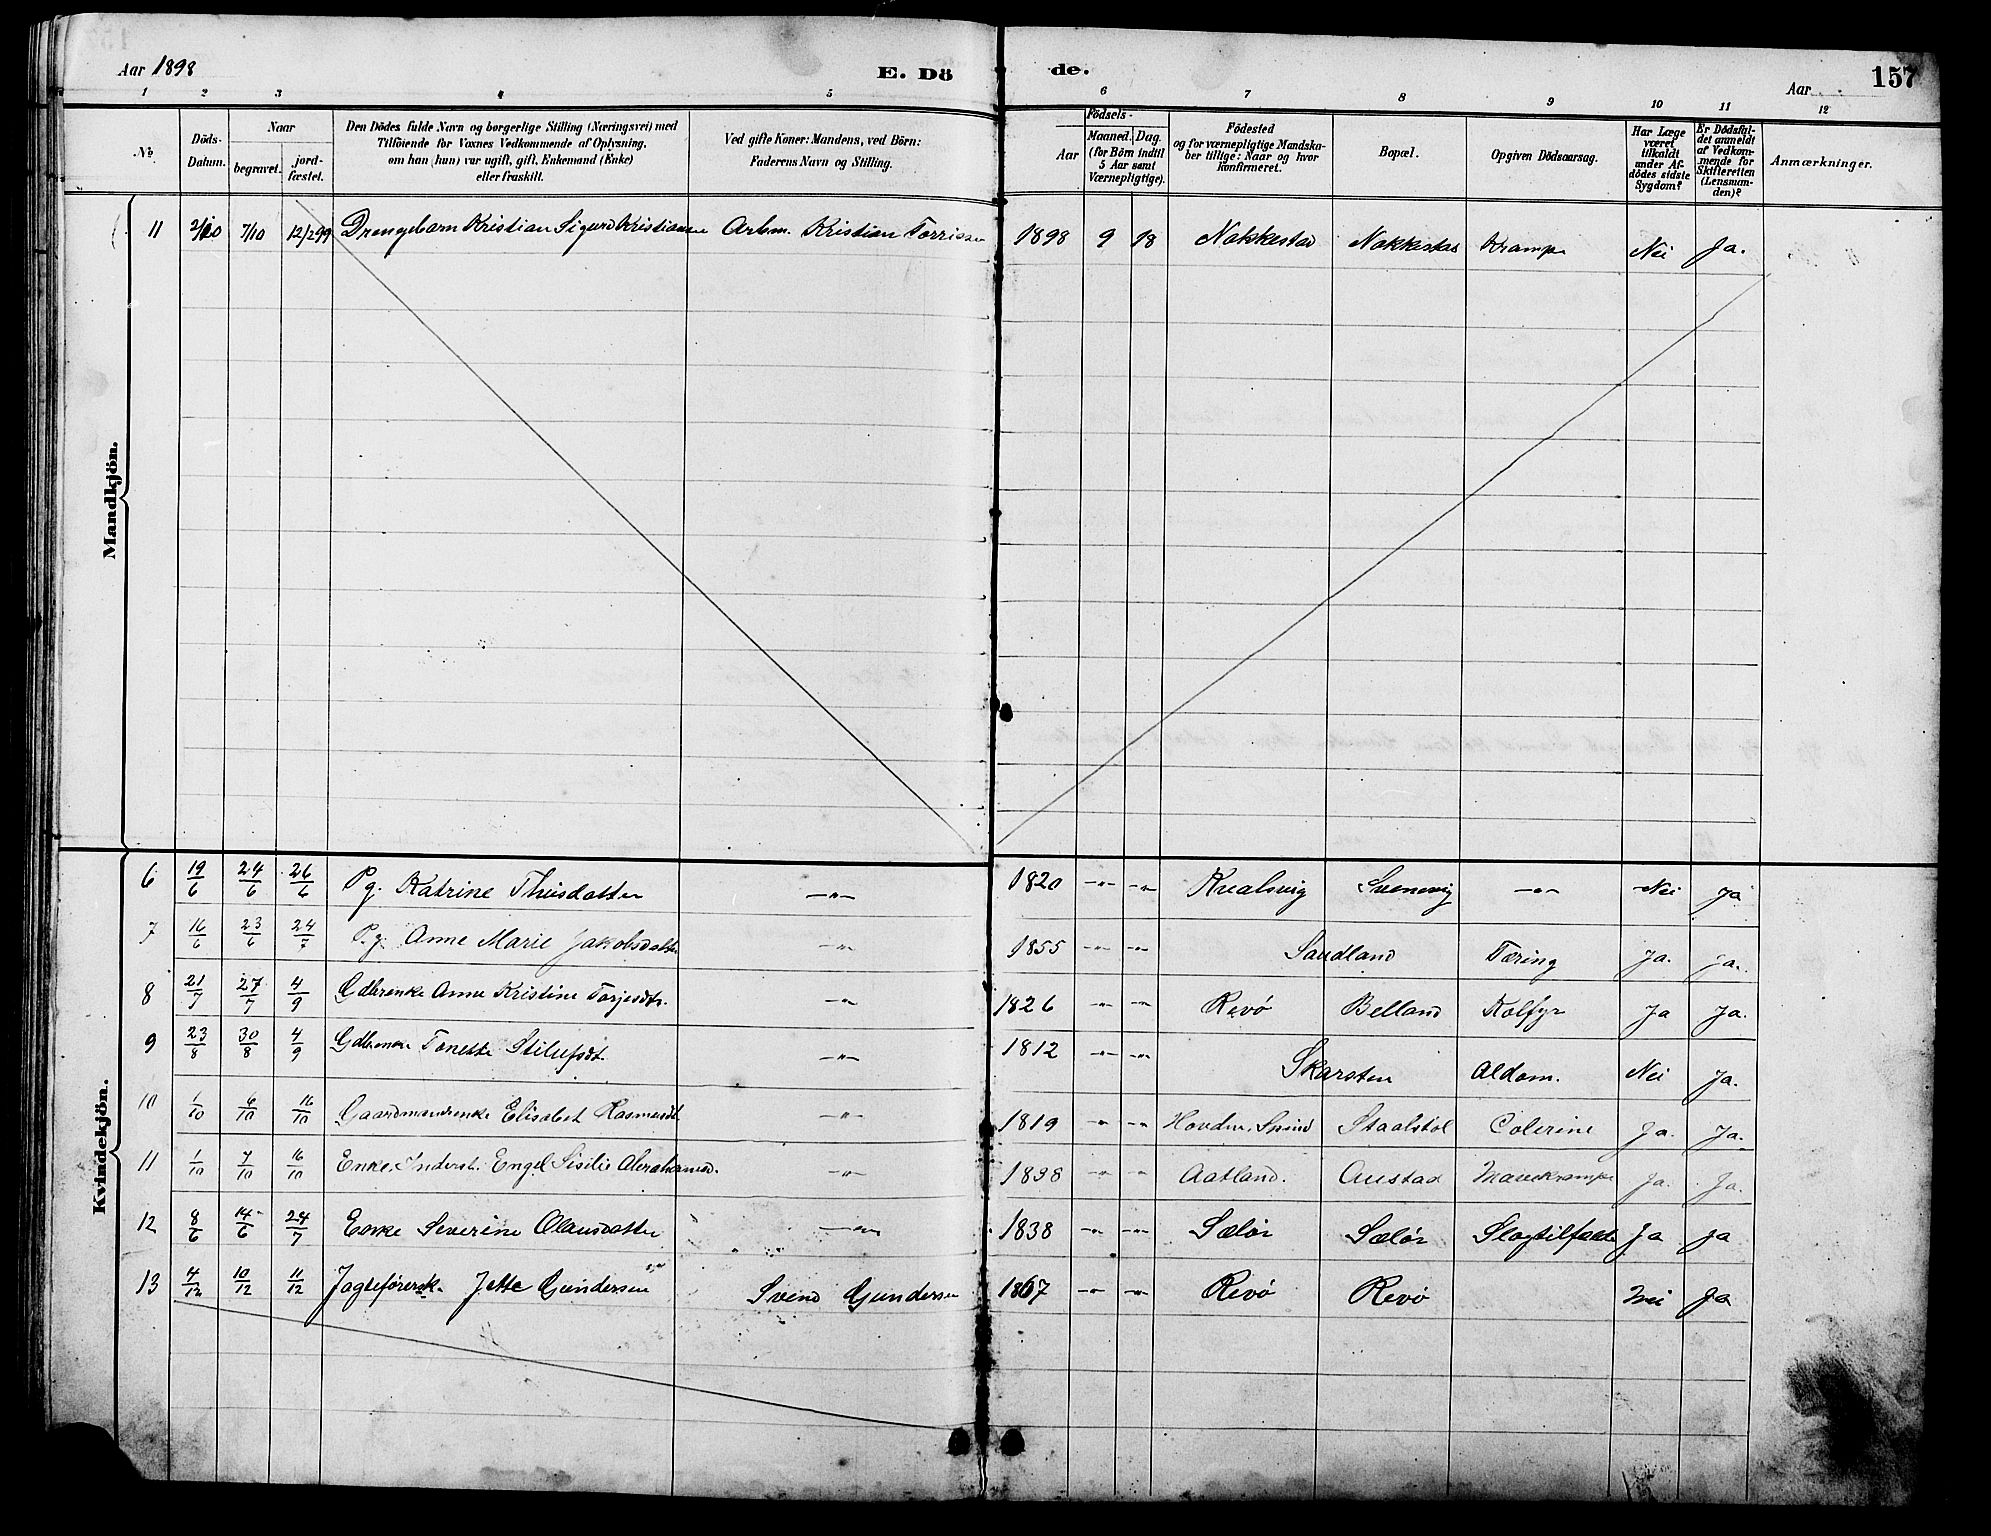 Aar 1898 E. Dö de. Aar 157
1 2 3 4 5 6 7 8 9 10 11 12
No. Döds-Datum. Naar begravet. jord-fæstet. Den Dödes fulde Navn og borgerlige Stilling (Næringsvei) med Tilföiende for Voxnes Vedkommende af Oplysning, om han (hun) var ugift, gift, Enkemand (Enke) eller fraskilt. Ved gifte Koner: Mandens, ved Börn: Faderens Navn og Stilling. Födsels- Aar Maaned. Dag. (for Börn indtil 5 Aar samt Værnepligtige). Födested og for værnepligtige Mandskaber tillige: Naar og hvor konfirmeret. Bopæl. Opgiven Dödsaarsag. Har Læge været tilkaldt under Afdödes sidste Sygdom? Er Dödsfaldet anmeldt af Vedkommende for Skifteretten (Lensmanden)? Anmærkninger.
Mandkjön.
11 2/10 7/10 12/299 Drengebarn Kristian Sigurd Kristiansen Arbm. Kristian Torrissen 1898 9 18 Nakkestad Nakkestad Krampe Nei Ja.
Kvindekjön.
6 19/6 24/6 26/6 Pg. Katrine Thusdatter —"— 1820 —"— —"— Kvalsvig Svenevig —"— Nei Ja
7 16/6 23/6 24/7 P.g. Anne Marie Jakobsdatter —"— 1855 —"— —"— Sandland Tæring Ja. Ja.
8 21/7 27/7 4/9 Gdbrenke Anne Kristine Torjesdtr. —"— 1826 —"— —"— Revø Belland Kolfyr Ja Ja.
9 23/8 30/8 4/9 Gdbrenke Tonette Stilufsdt. —"— 1812 —"— —"— Skarsten Aldom. Nei Ja.
10 1/10 6/10 16/10 Gaardmandsenke Elisabet Rasmusdt. —"— 1819 —"— —"— Hovden, Spind Staalstøl Colerine Ja. Ja.
11 1/10 7/10 16/10 Enke. Inderst. Engel Sisilie Abrahamsd. —"— 1838 —"— —"— Aatland. Austad Mavekrampe Ja. Ja.
12 8/6 14/6 24/7 Enke Severine Olausdatter —"— 1838 —"— —"— Sælør Sælør Slagtilfælde Ja Ja
13 4/12 10/12 11/12 Jagteførersk. Jette Gundersen Svend Gundersen 1867 —"— —"— Revø Revø Nei Ja